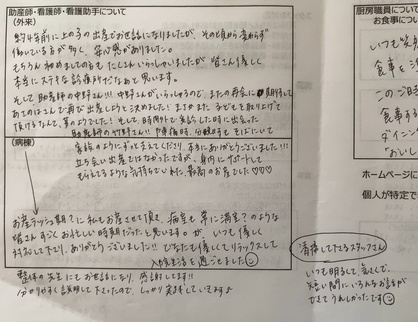 助産師・看護師・看護助手について
(外来)
約4年前に上の子の出産でお世話になりましたが、その頃から変わらず
働いている方が多く、安心感がありました。
もちろん初めましての方もたくさんいらっしゃいましたが皆さん優しく
本当にステキな診療所だなぁと思います。
そして助産師の中野さん!!! 中野さんがいらっしゃるので、またの再会に期待して
で再び出産しようと決めました! まさかまた子どもを取り上げて
頂けるなんて、夢のようでした! そして時間外で受診した時に出会った
助産師の竹野さん!! 陣痛時、分娩時もそばにいて
(病棟)
家族のようにずっと支えてくださり、本当にありがとうございました!!!
立ち会い出産ではなかったですが、身内にサポートして
もらえてるような気持ちでいれた最高のお産でした♡♡♡
お産ラッシュ期?に私もお産させて頂き、病室も常に満室?のような
皆さんすごくお忙しい時期だったと思います。が、いつも優しく
対応して下さり、ありがとうございました!! どなたも優しくてリラックスして
入院生活を過ごせました☺
整体の先生にもお世話になり、感謝してます!!
分かりやすく説明して下さったので、しっかり実践していきます♪
厨房職員について
お食事につい
いつも笑
食事を
このご時
食事する
ダイニング
"おいし
ホームページに
個人が特定で
清掃して下さるスタッフさん
いつも明るくて、気さくで、
短い間にいろんなお話が
できてうれしかったです☺